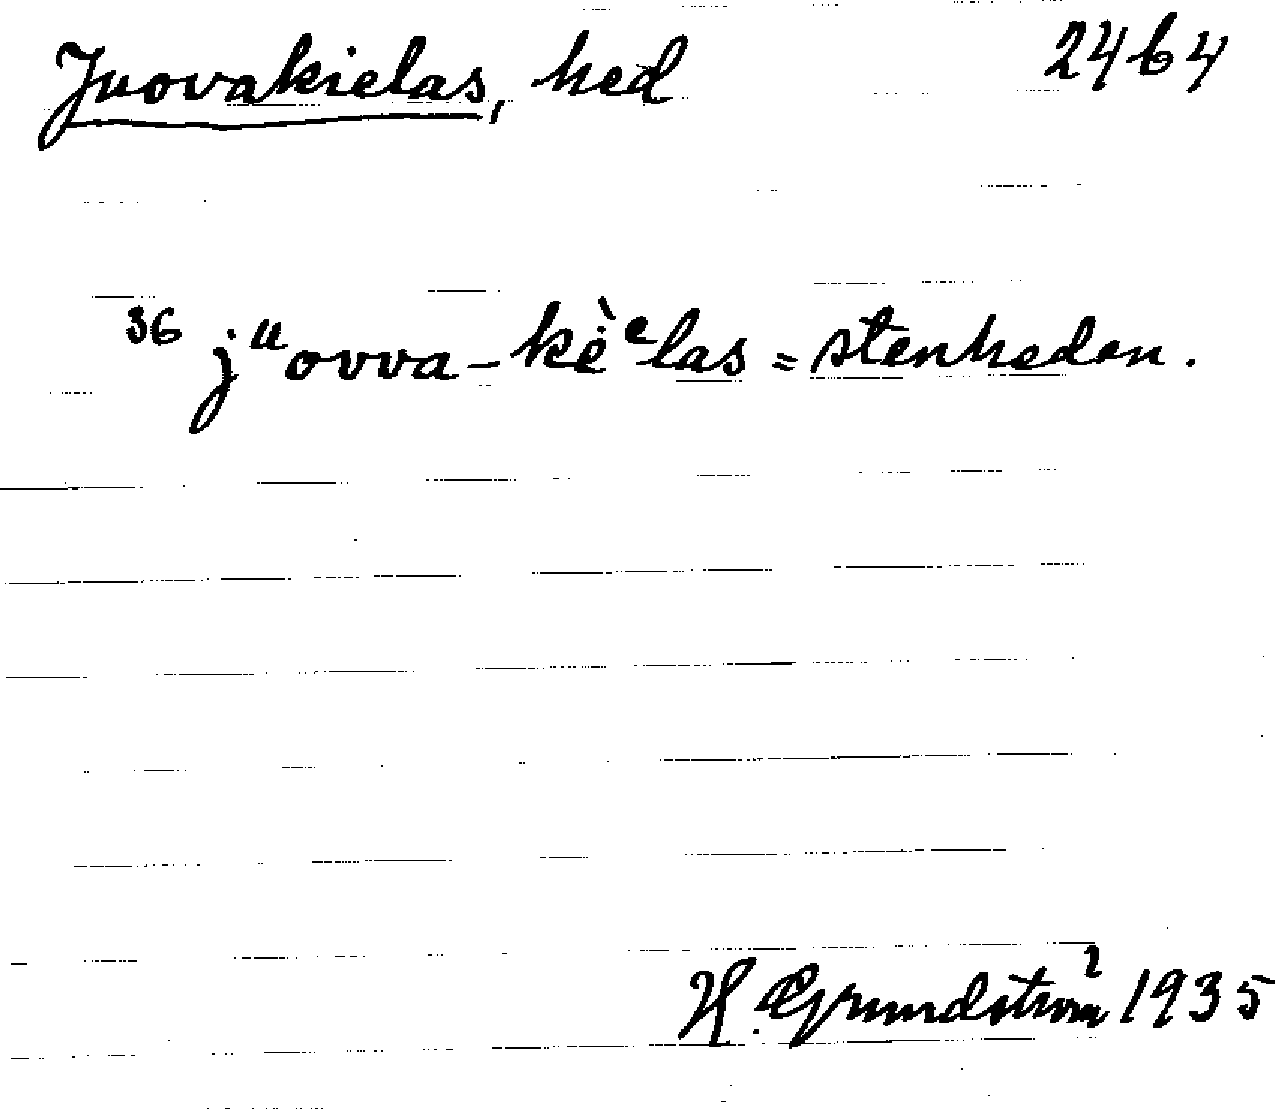 Juovakielas, hed 2464
36 jᵘovva-kèᵉlas = stenheden.
H. Grundström 1935